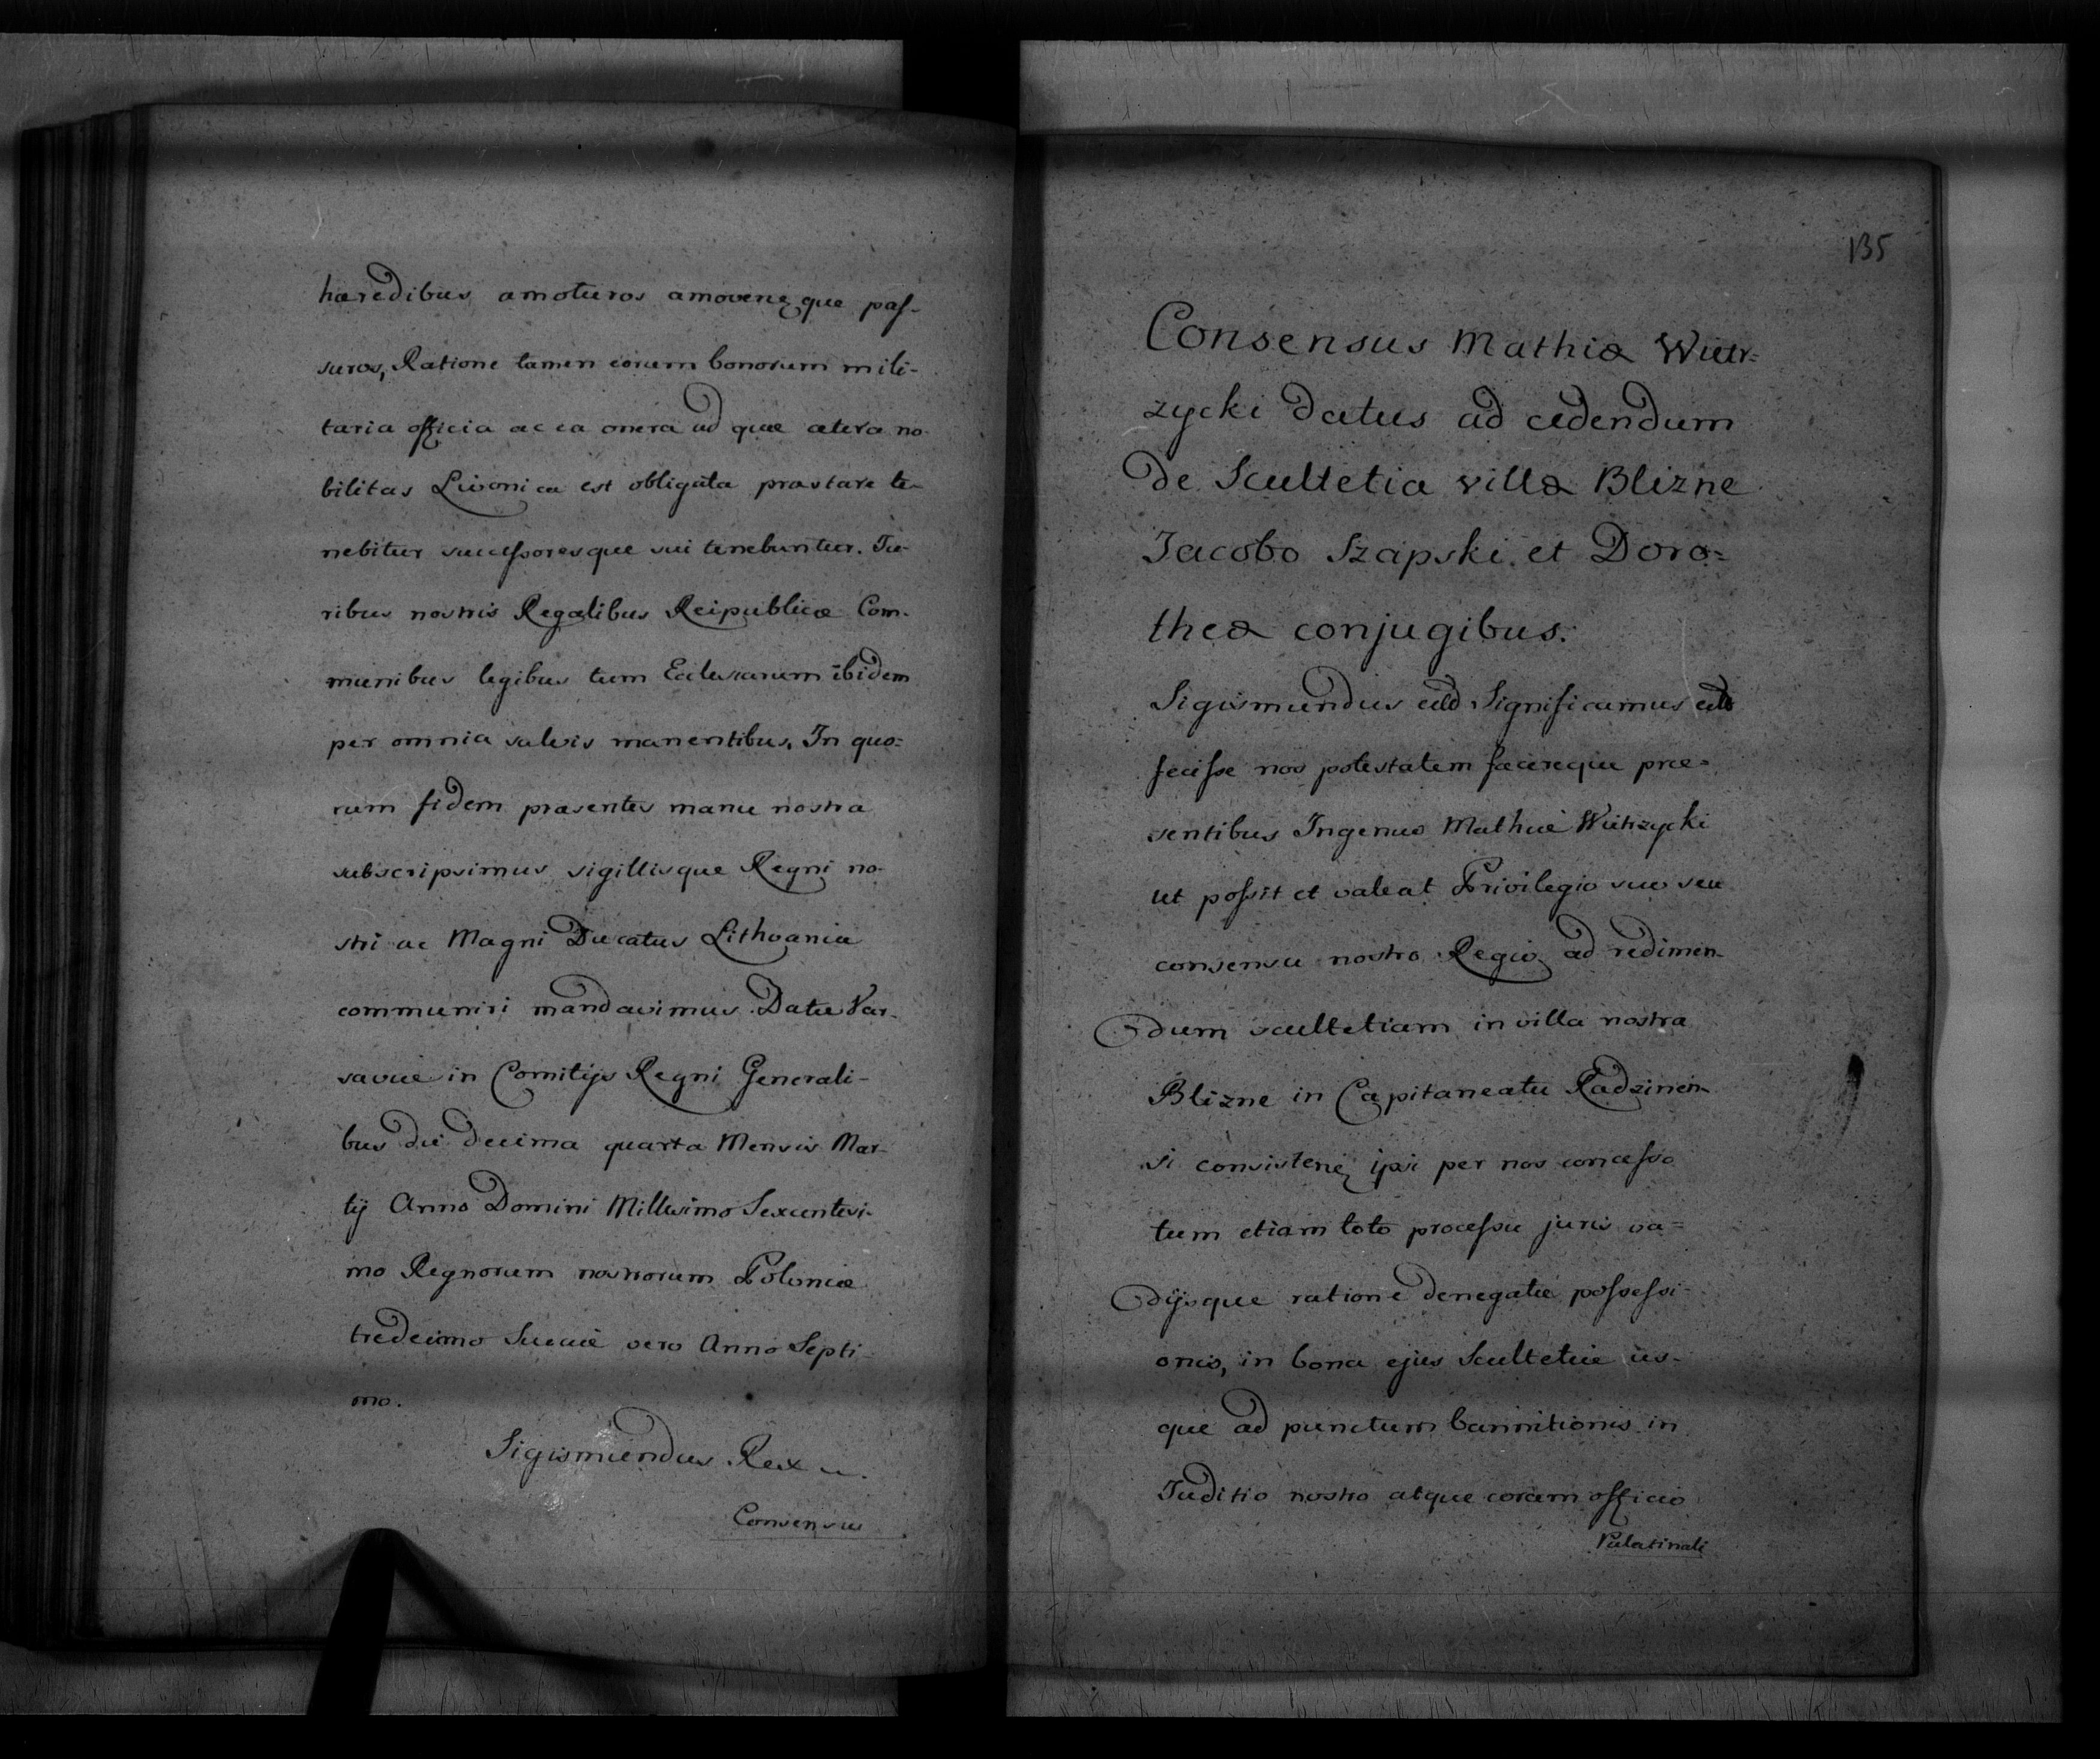 hæredibus amoturos amoverią que pas-
suros, Ratione tamen eorum bonorum mili-
taria officia ac ea onera ad quæ cætera no-
bilitas Livonica est obligata præstare te-
nebitur successoresque sui tenebuntur. Ju-
ribus nostris Regalibus Reipublicæ Com-
munibus legibus tum Ecclesiarum ibidem
per omnia salvis manentibus. In quo=
rum fidem præsentes manu nostra
subscripsimus sigillisque Regni no-
stri ac Magni Ducatus Lithvaniæ
communiri mandavimus. Datæ Var-
saviæ in Comitijs Regni Generali-
bus die decima quarta Mensis Mar-
tij Anno Domini Millesimo Sexcentesi-
mo Regnorum nostrorum Poloniæ
tredecimo Sueciæ vero Anno Septi-
mo.
Sigismundus Rex
Consensus
135
Consensus Mathiæ Wietr=
zycki datus ad cedendum
de Scultetia villæ Blizne
Jacobo Szapski et Doro=
theæ conjugibus.
Sigismundus Significamus
fecisse nos potestatem facereque præ=
sentibus Ingenuo Mathiæ Wietrzycki
ut possit et valeat Privilegio suo seu
consensu nostro Regio ad redimen-
dum scultetiam in villa nostra
Blizne in Capitaneatu Radzinen-
si consistenę ipsi per nos concesso
tum etiam toto processu juris va=
dijsque ratione denegatæ possessi-
onis, in bona ejus Scultetiæ us-
que ad punctum bannitionis in
Juditio nostro atque coram officio
Palatinali